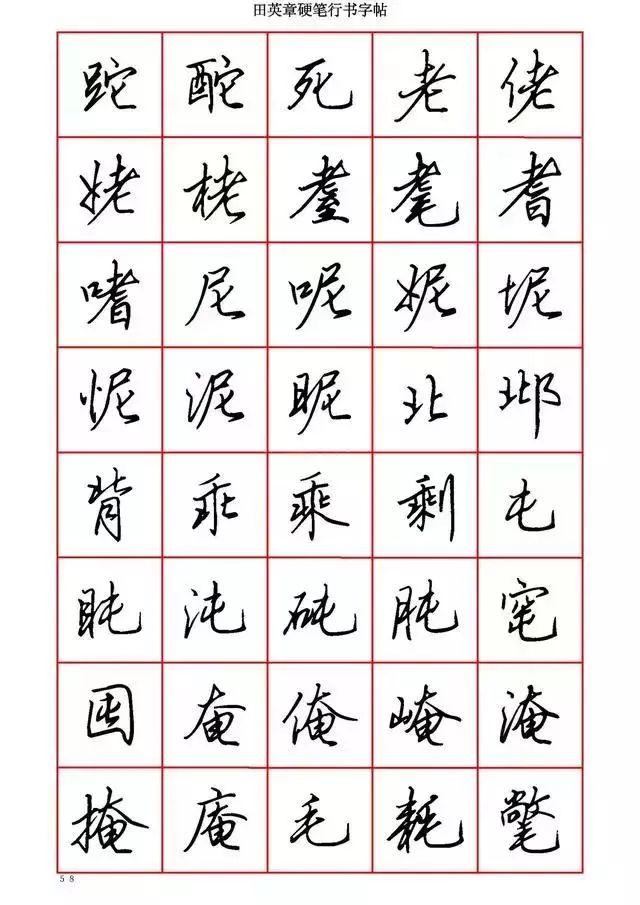 田英章硬笔行书字帖
跎 酡 死 老 佬
姥 栳 耋 耄 耆
嗜 尼 呢 妮 坭
怩 泥 昵 北 邶
背 乖 乘 剩 屯
盹 沌 砘 肫 窀
囤 奄 俺 崦 淹
掩 庵 毛 耗 氅
58